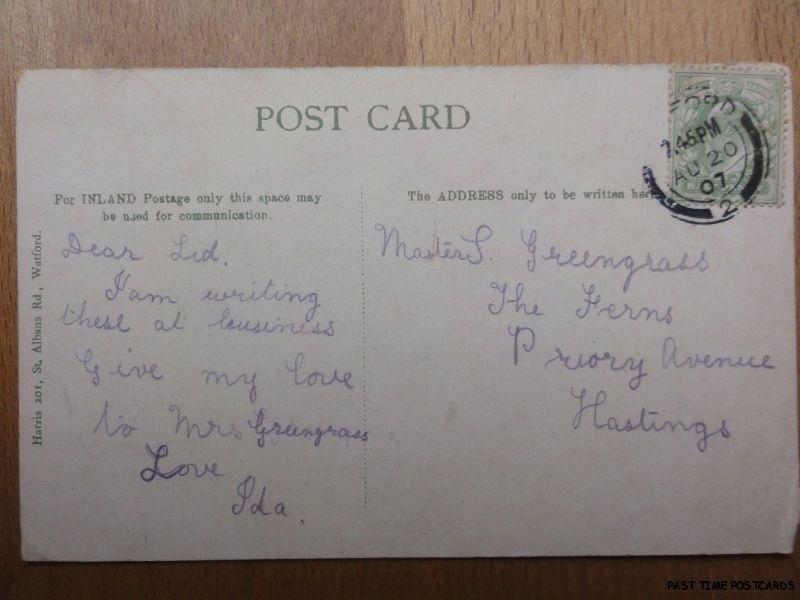 POST CARD
For INLAND Postage only this space may
be used for communication.
The ADDRESS only to be written her
Harris 201, St. Albans Rd., Watford.
Dear Sid.
I am writing
these at business
Give my love
to Mrs Greengrass
Love
Ida.
Master S. Greengrass
The Ferns
Priory Avenue
Hastings
FORD
7.45PM
AU 20
07
2
PAST TIME POSTCARDS